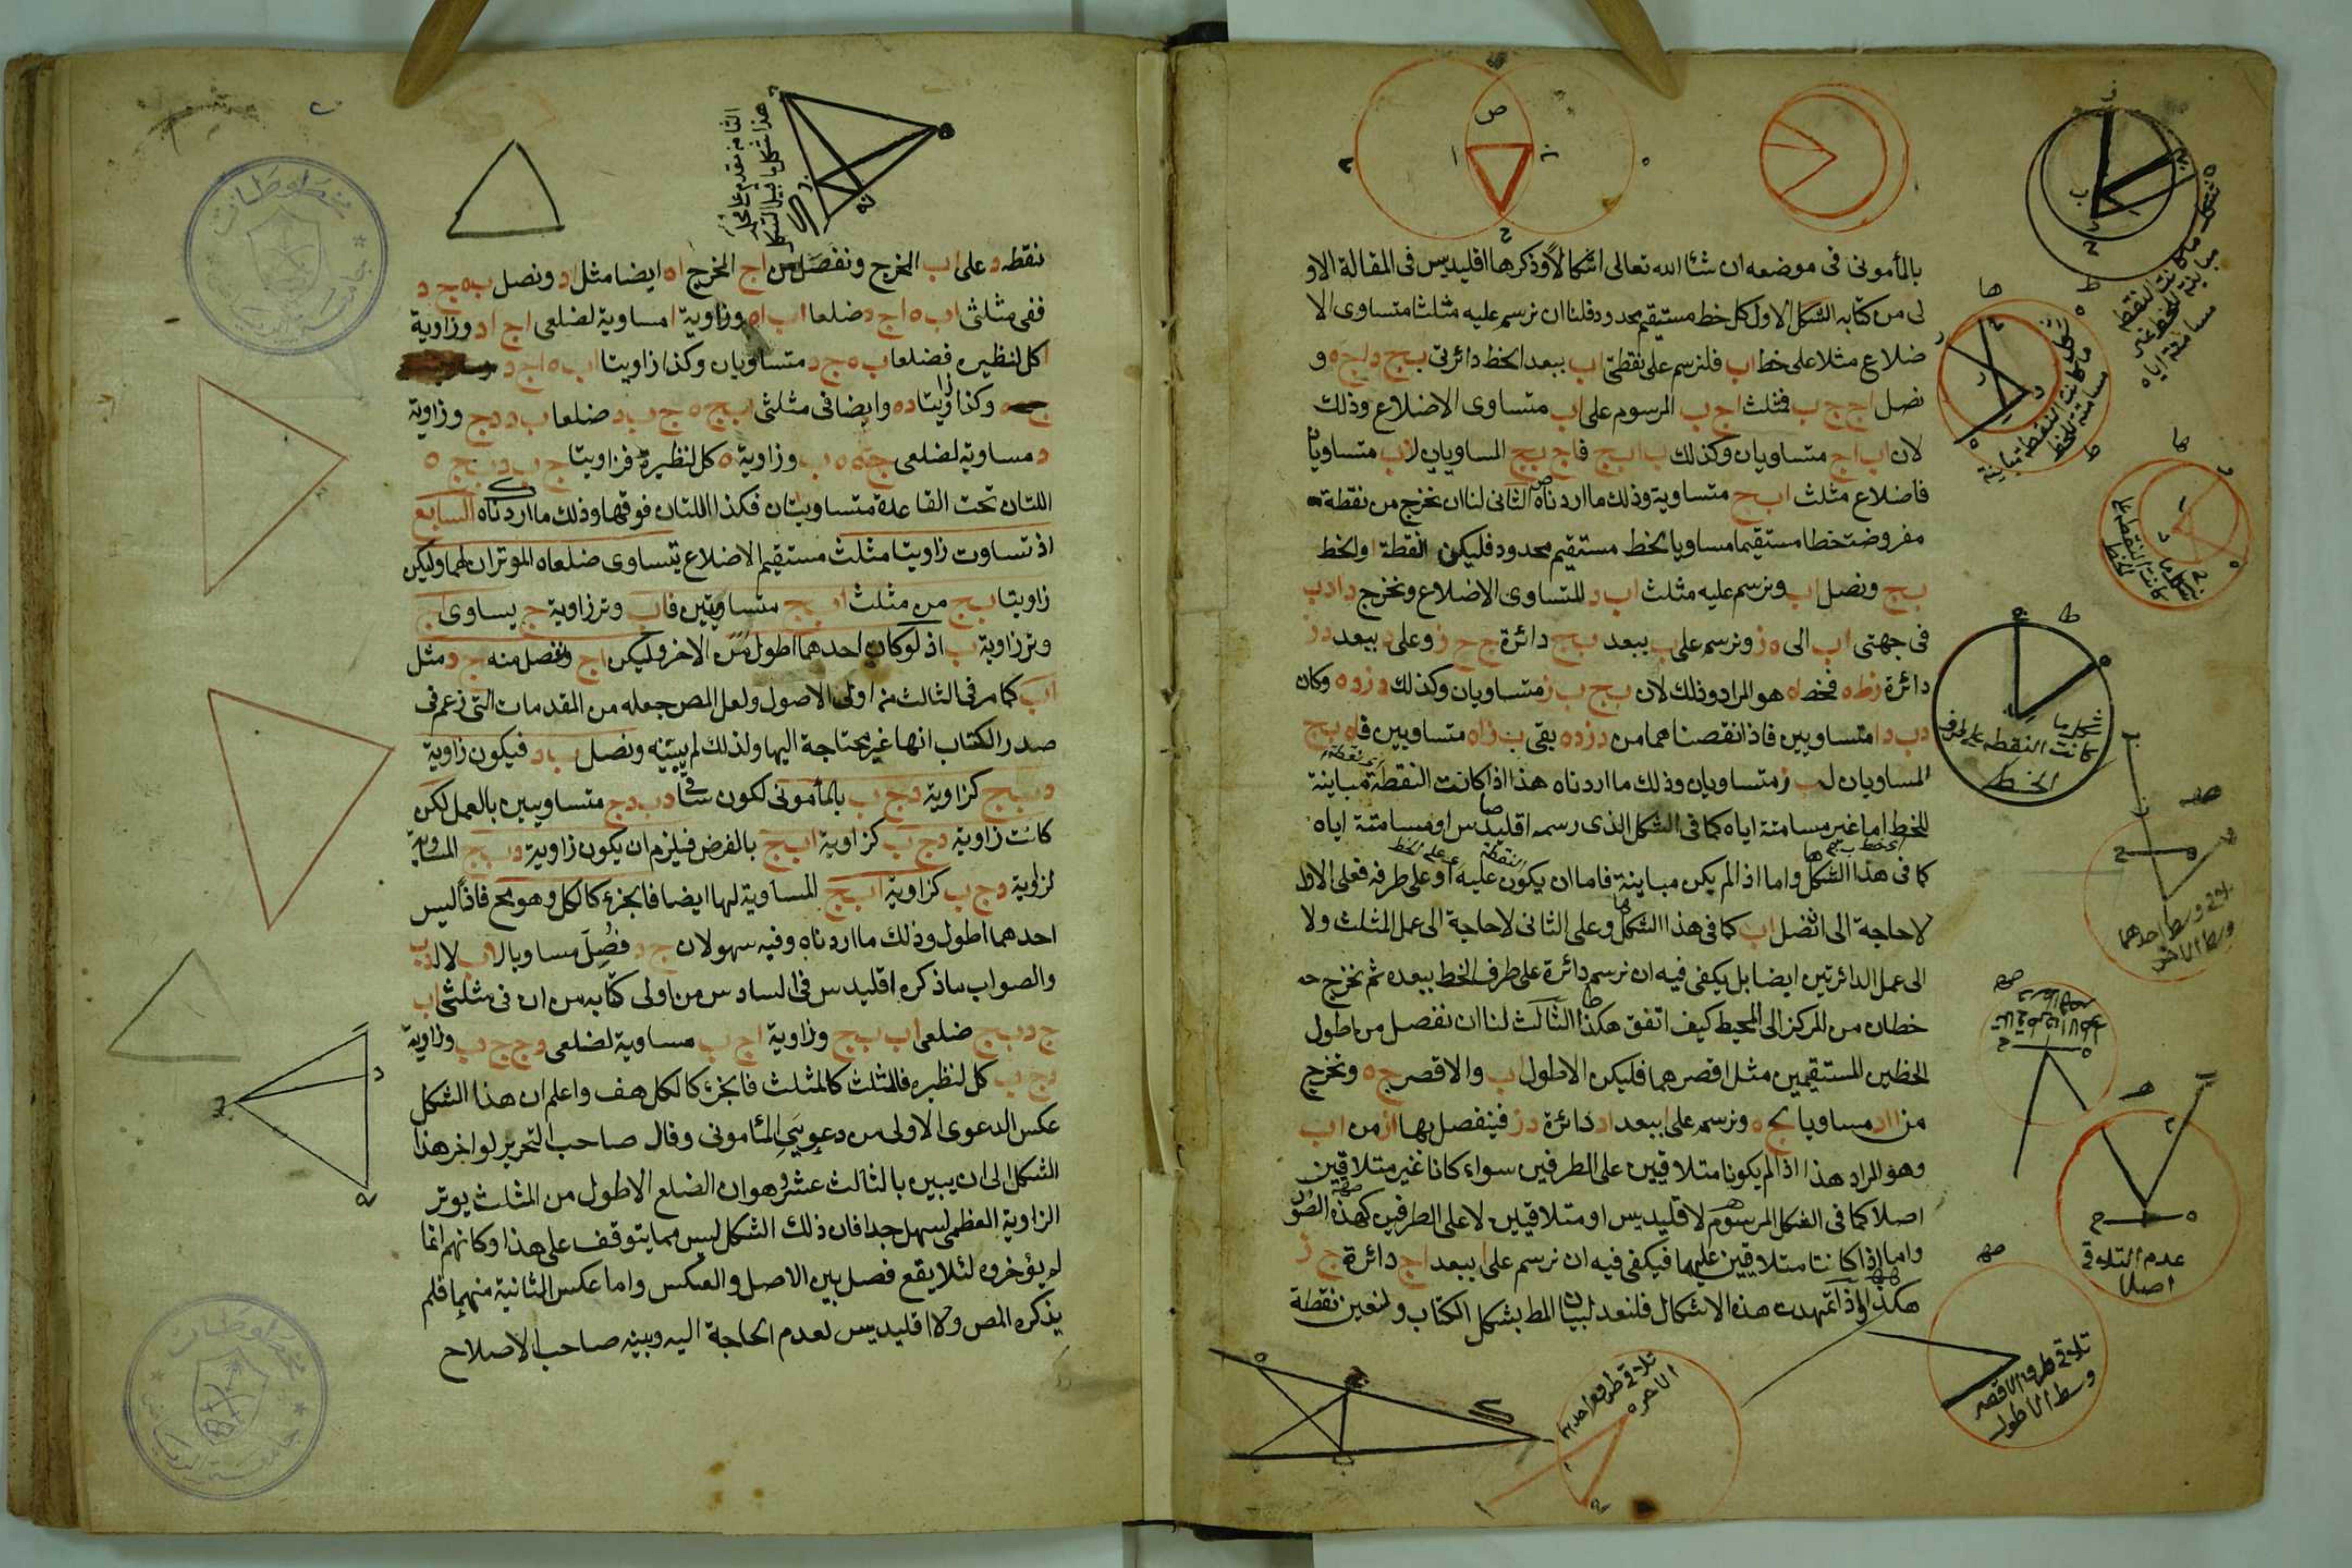 بالمأمونى فى موضعه ان شاء الله تعالى اشكالا وذكرها اقليدس فى المقالة الاو
لى من كتابه الشكل الاول كل خط مستقيم محدود فلنا ان نرسم عليه مثلثا متساوى الا
ضلاع مثلا على خط اب فلنرسم على نقطتى اب ببعد الخط دائرتى بج د اج ه و
نصل اج ج ب فمثلث اج ب المرسوم على اب متساوى الاضلاع وذلك
لان اب اج متساويان وكذلك ب ا ب ج فاج بج المساويان لاب متساويان
فاضلاع مثلث اب ج متساوية وذلك ما اردناه الثانى لنا ان نخرج من نقطة
مفروضة خطا مستقيما مساويا لخط مستقيم محدود فليكن النقطة ا والخط
بج ونصل اب ونرسم عليه مثلث اب د المتساوى الاضلاع ونخرج دا دب
فى جهتى اب الى ه ز ونرسم على ب ببعد بج دائرة ج ح ز وعلى د ببعد دز
دائرة زط ه فخط اه هو المراد وذلك لان بج ب ز متساويان وكذلك دز ده وكان
دب دا متساويين فاذا نقصناهما من دز ده بقى ب ز اه متساويين فاه بج
المساويان لب ز متساويان وذلك ما اردناه هذا اذا كانت النقطة مباينة
للخط اما غير مسامتة اياه كما فى الشكل الذى رسمه اقليدس او مسامتة اياه
كما فى هذا الشكل واما اذا لم يكن مباينة فاما ان يكون عليه او على طرفه فعلى الاول
لا حاجة الى ان نصل اب كما فى هذا الشكل وعلى الثانى لا حاجة الى عمل المثلث ولا
الى عمل الدائرتين ايضا بل يكفى فيه ان نرسم دائرة على طرف الخط ببعده ثم نخرج
خطان من المركز الى المحيط كيف اتفق هكذا الثالث لنا ان نفصل من اطول
الخطين المستقيمين مثل اقصرهما فليكن الاطول اب والاقصر ج ه ونخرج
من ا اد مساويا لج ه ونرسم على ا ببعد اد دائرة دز فينفصل بها از من اب
وهو المراد هذا اذا لم يكونا متلاقيين على الطرفين سواء كانا غير متلاقيين
اصلا كما فى الشكل المرسوم لاقليدس او متلاقيين لا على الطرفين كهذه الصور
واما اذا كانتا متلاقيين عليهما فيكفى فيه ان نرسم على ا ببعد اج دائرة ج ز
هكذا واذ اتمهدت هذه الاشكال فلنعد لبيان المط بشكل الكتاب ولنعين نقطة
شكل ما كانت النقطة
مباينة للخط غير
مسامتة اياه
شكل ما كانت النقطة مباينة
مسامتة للخط
شكل ما كانت النقطة على
الخط
شكل ما كانت النقطة على طرف
الخط
تلاقى وسط احدهما
وسط الآخر
عدم التلاقى
اصلا
تلاقى طرف الاقصر
وسط الاطول
نقطة د على اب المخرج ونفصل من اج المخرج اه ايضا مثل اد ونصل ب ه ج د
ففى مثلثى اب ه اج د ضلعا اب اه وزاوية ا مساوية لضلعى اج اد وزاوية
ا كل لنظيره فضلعا ب ه ج د متساويان وكذا زاويتا اب ه اج د
وكذا زاويتا د ه وايضا فى مثلثى ب ج ه ج ب د ضلعا ب د دج وزاوية
د مساوية لضلعى ج ه ه ب وزاوية ه كل لنظيره فزاويتا ج ب د ب ج ه
اللتان تحت القاعدة متساويتان فكذا اللتان فوقها وذلك ما اردناه السابع
اذ تساوت زاويتا مثلث مستقيم الاضلاع يتساوى ضلعاه الموتران لهما وليكن
زاويتا ب ج من مثلث اب ج متساويتين فاب وتر زاوية ج يساوى اج
وتر زاوية ب اذ لو كان احدهما اطول من الاخر وليكن اج ونفصل منه ج د مثل
اب كما مر فى الثالث من اولى الاصول ولعل المص جعله من المقدمات التى زعم فى
صدر الكتاب انها غير محتاجة اليها ولذلك لم يبينه ونصل ب د فيكون زاوية
د ب ج كزاوية د ج ب بالمأمونى لكون ساقى دب دج متساويين بالعمل لكن
كانت زاوية دج ب كزاوية اب ج بالفرض فيلزم ان يكون زاوية د ب ج المساوية
لزاوية دج ب كزاوية اب ج المساوية لها ايضا فالجزء كالكل وهو مح فاذا ليس
احدهما اطول وذلك ما اردناه وفيه سهو لان ج د فصل مساويا لاب لا لدب
والصواب ما ذكره اقليدس فى السادس من اولى كتابه من ان فى مثلثى اب
ج دب ج ضلعى اب ب ج وزاوية اج ب مساوية لضلعى دج ج ب وزاوية
دج ب كل لنظيره فالمثلث كالمثلث فالجزء كالكل هف واعلم ان هذا الشكل
عكس الدعوى الاولى من دعويى المأمونى وقال صاحب التحرير لو اخر هذا
الشكل الى ان يبين بالثالث عشر وهو ان الضلع الاطول من المثلث يوتر
الزاوية العظمى لسهل جدا فان ذلك الشكل ليس مما يتوقف على هذا وكانهم انما
لم يؤخروه لئلا يقع فصل بين الاصل والعكس واما عكس الثانية منهما فلم
يذكره المص ولا اقليدس لعدم الحاجة اليه وبينه صاحب الاصلاح